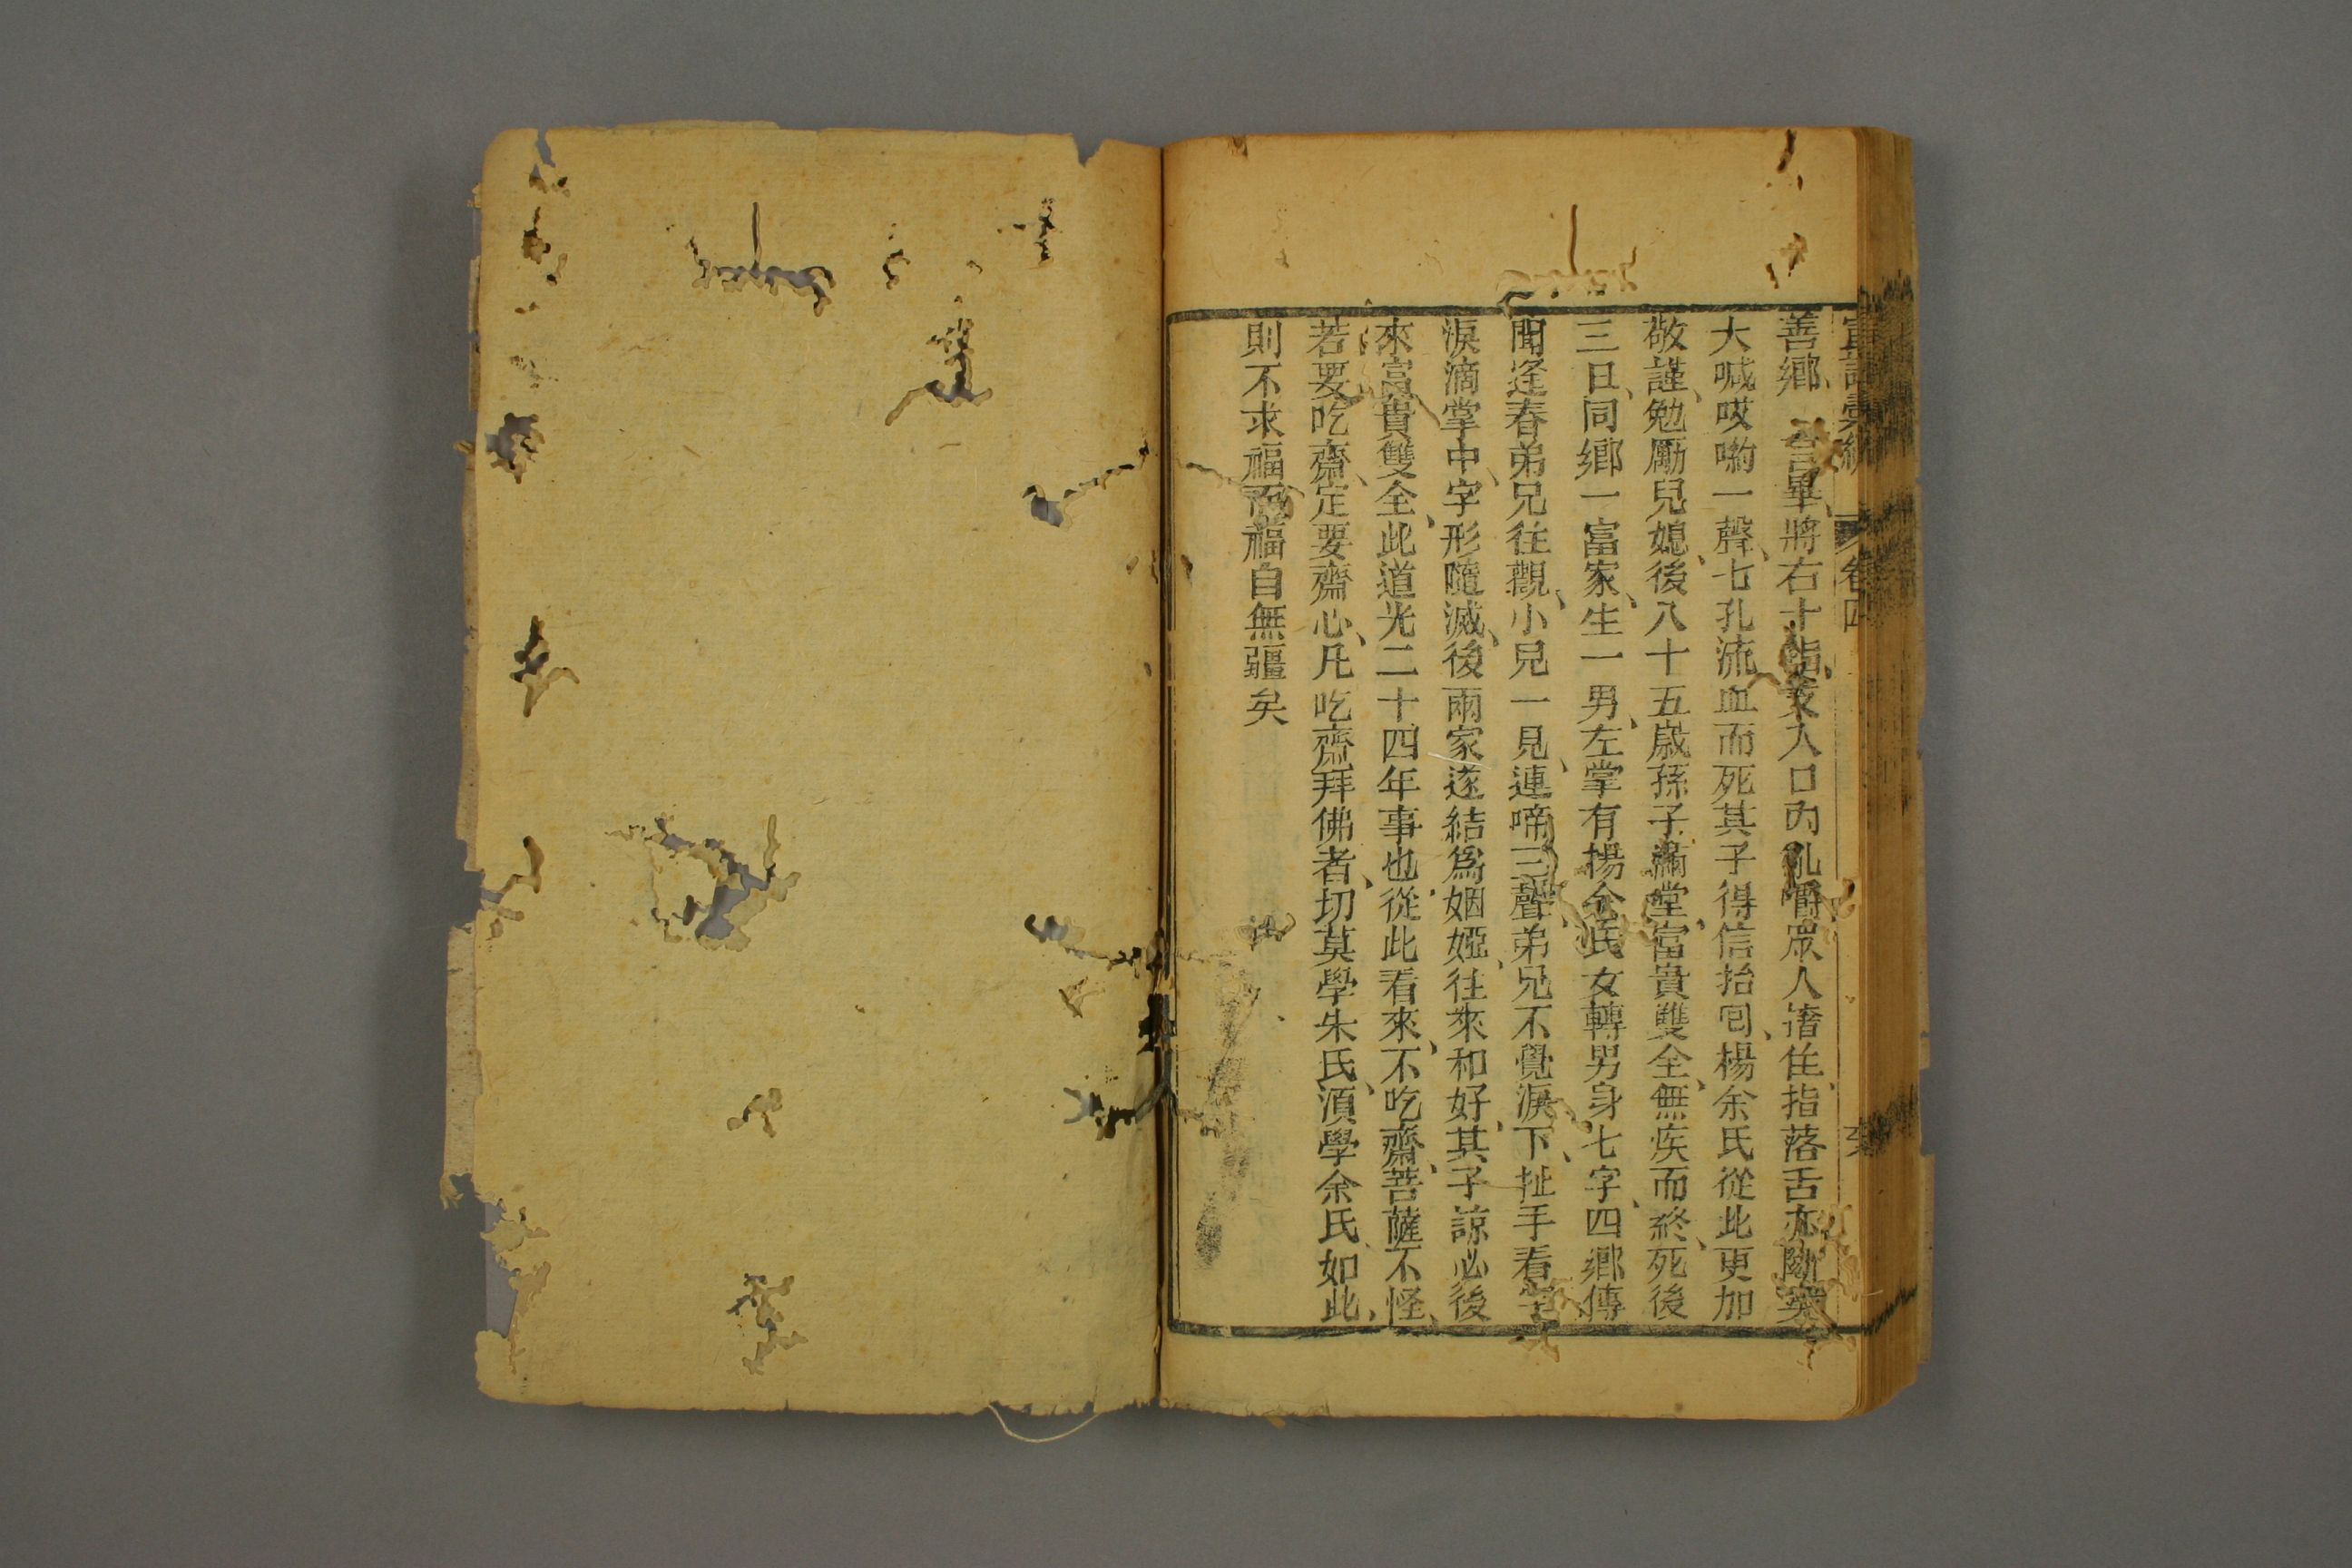 宣講彙編 卷四
善鄉、言畢、將右十指、叉入口內亂嚼眾人揝住、指落舌亦斷突
大喊哎喲一聲、七孔流血而死其子得信抬回、楊余氏從此更加
敬謹、勉勵兒媳、後八十五歲孫子滿堂、富貴雙全、無疾而終、死後
三日、同鄉一富家、生一男、左掌有楊余氏女轉男身七字、四鄉傳
聞逢春弟兄往觀、小兒一見、連啼三聲、弟兄不覺淚下、扯手看字
淚滴掌中、字形隨滅、後兩家遂結為姻婭、往來和好、其子諒必後
來富貴雙全、此道光二十四年事也、從此看來、不吃齋、菩薩不怪、
若要吃齋、定要齋心、凡吃齋拜佛者、切莫學朱氏、須學余氏、如此、
則不求福而福自無疆矣